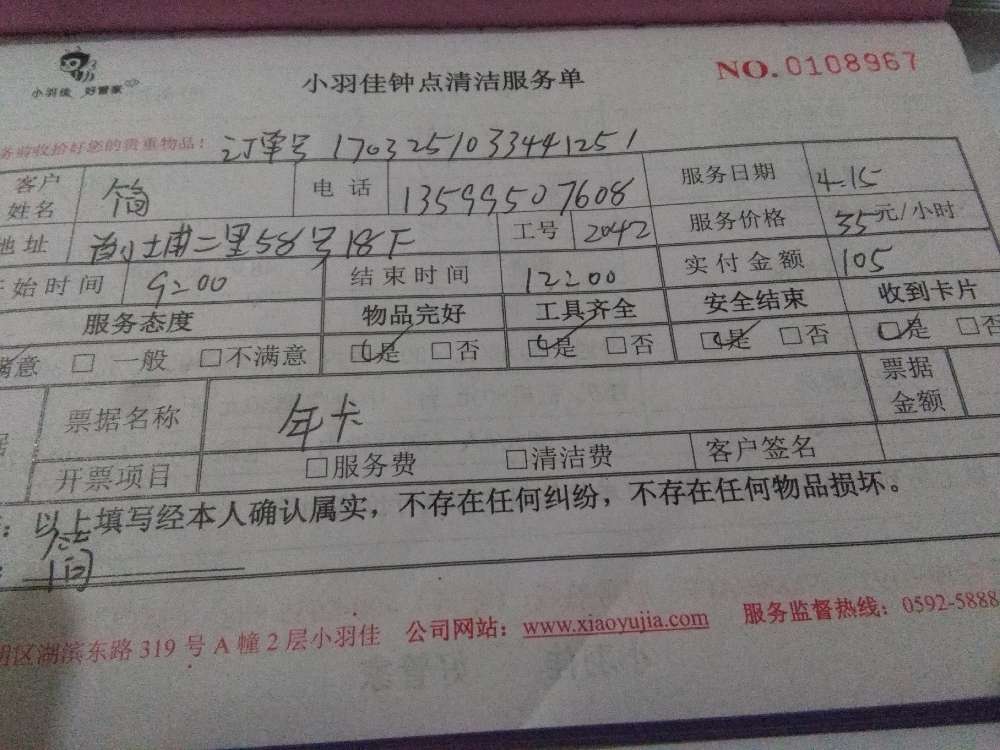 小羽佳 好管家
小羽佳钟点清洁服务单
NO.0108967
务前收拾好您的贵重物品： 订单号 1703251033441251
客户姓名 简 电话 13599507608 服务日期 4.15
地址 二里58号18F 工号 2042 服务价格 35元/小时
开始时间 9:00 结束时间 12:00 实付金额 105
服务态度 物品完好 工具齐全 安全结束 收到卡片
满意 □ 一般 □不满意 □是 □否 □是 □否 □是 □否 □是 □否
票据名称 年卡 票据金额
开票项目 □服务费 □清洁费 客户签名
：以上填写经本人确认属实，不存在任何纠纷，不存在任何物品损坏。
简
明区湖滨东路319号A幢2层小羽佳 公司网站：www.xiaoyujia.com 服务监督热线：0592-5888